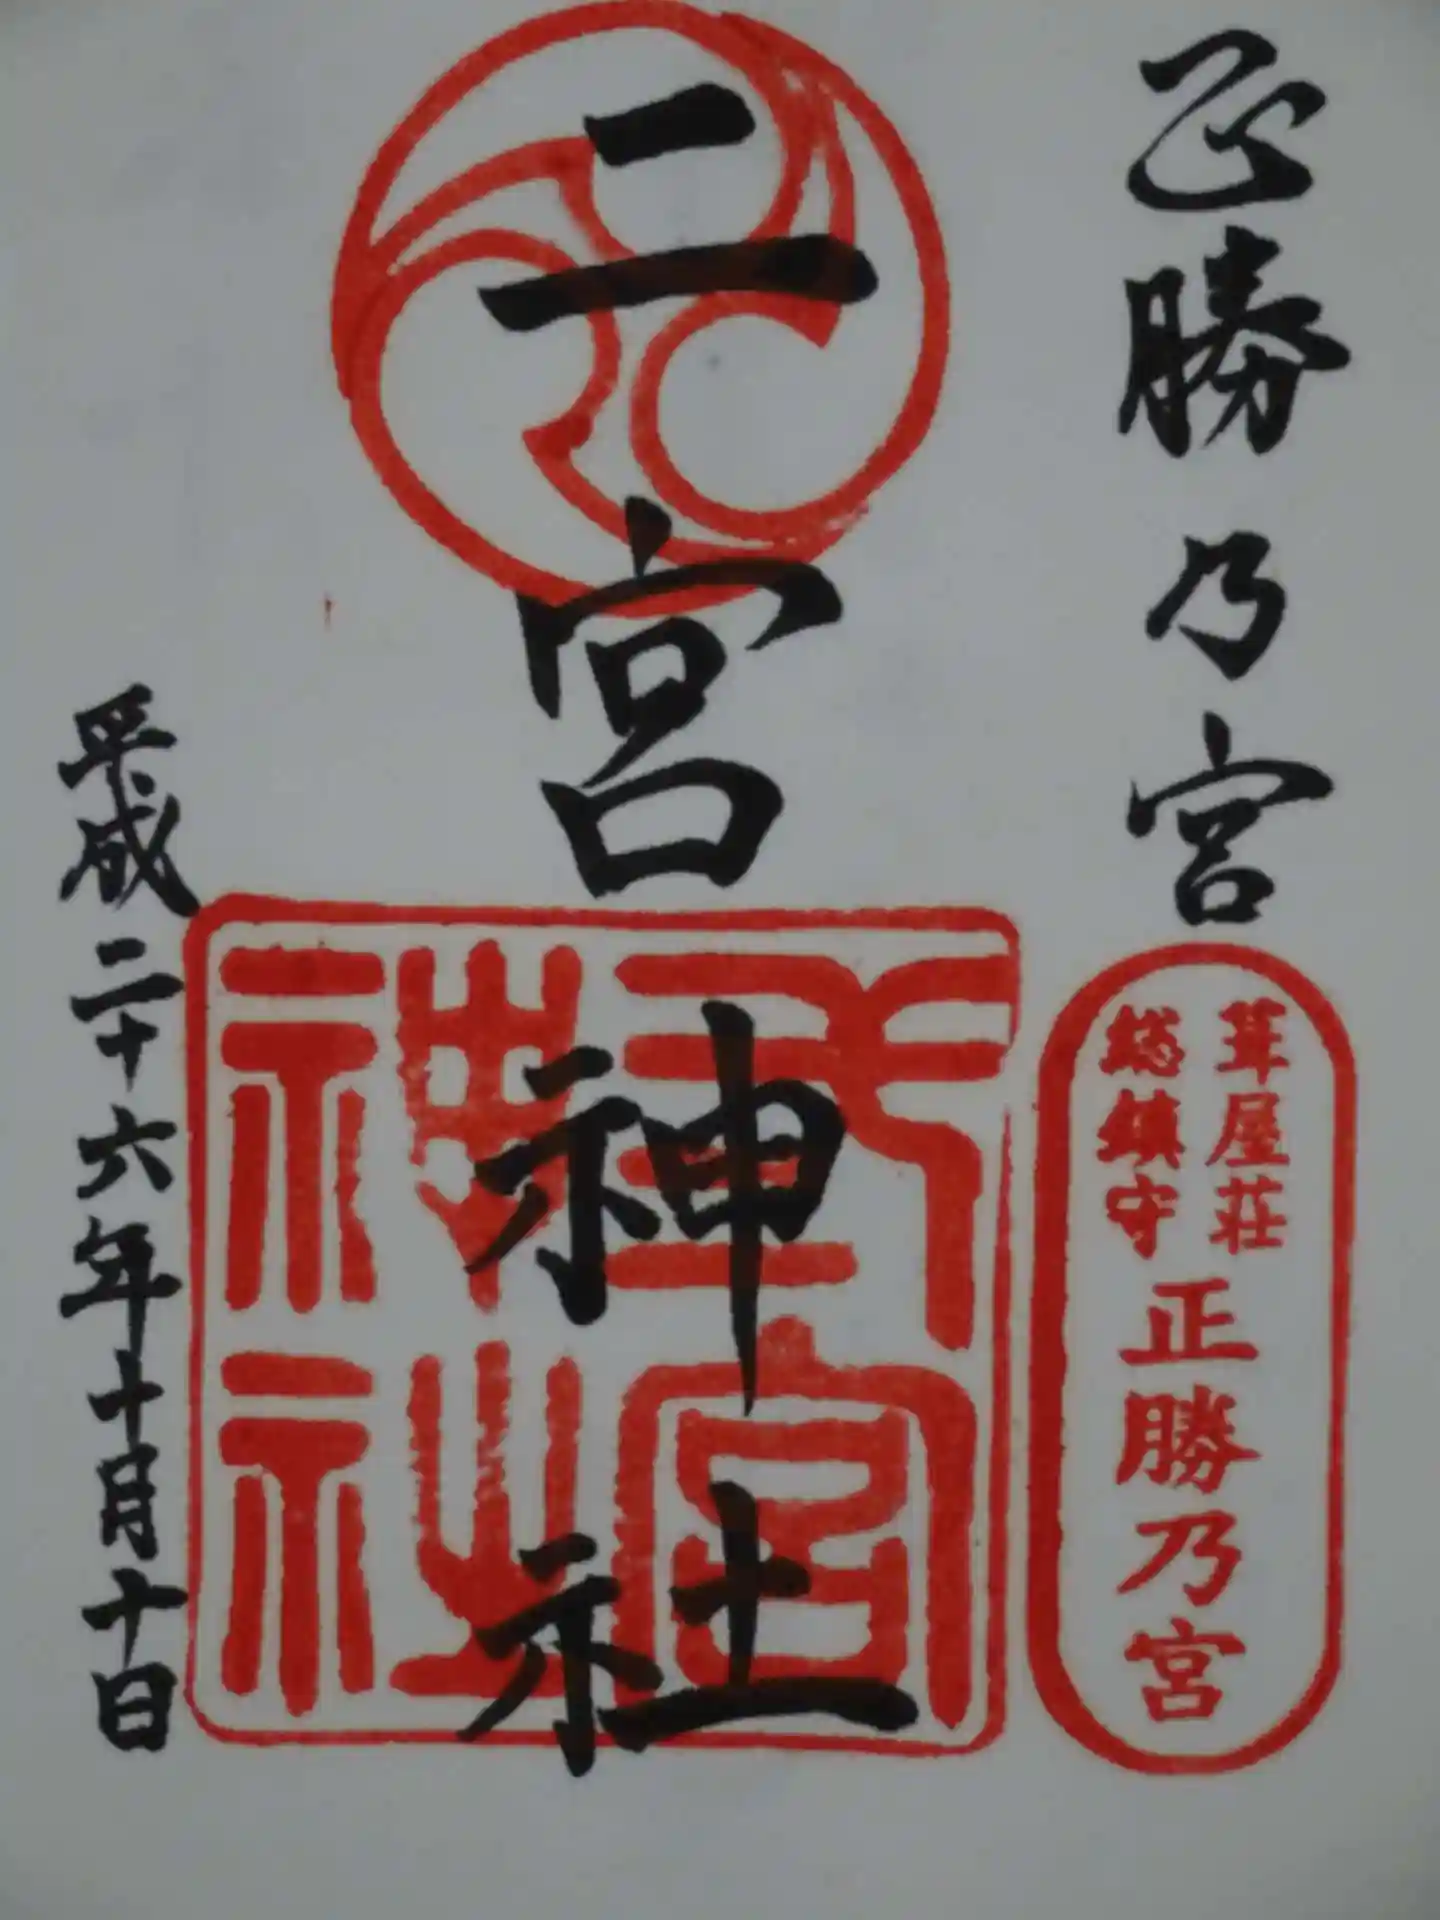 正勝乃宮
葺屋荘
総鎮守
正勝乃宮
二宮神社
平成二十六年十月十日